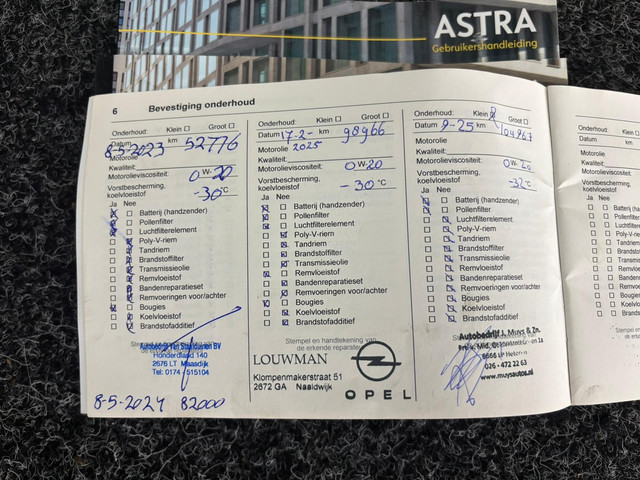 ASTRA
Gebruikershandleiding
6 Bevestiging onderhoud
Onderhoud: Klein ☐ Groot ☐
Datum 8-5-2023 km 52776
Motorolie
Kwaliteit:
Motorolieviscositeit: 0 W-20
Vorstbescherming,
koelvloeistof -30°C
Ja Nee
Batterij (handzender)
Pollenfilter
Luchtfilterelement
Poly-V-riem
Tandriem
Brandstoffilter
Transmissieolie
Remvloeistof
Bandenreparatieset
Remvoeringen voor/achter
Bougies
Koelvloeistof
Brandstofadditief
Honderdland 140
2676 LT Maasdijk
Tel: 0174 - 515104
8-5-2024 82000
Onderhoud: Klein ☐ Groot ☐
Datum 17-2- km 98966
Motorolie 2025
Kwaliteit:
Motorolieviscositeit: 0 W-20
Vorstbescherming,
koelvloeistof -30°C
Ja Nee
Batterij (handzender)
Pollenfilter
Luchtfilterelement
Poly-V-riem
Tandriem
Brandstoffilter
Transmissieolie
Remvloeistof
Bandenreparatieset
Remvoeringen voor/achter
Bougies
Koelvloeistof
Brandstofadditief
Stempel en handtekening van
de erkende reparateur
LOUWMAN
Klompenmakerstraat 51
2672 GA Naaldwijk
OPEL
Onderhoud: Klein Groot ☐
Datum 9-25 km 104867
Motorolie
Kwaliteit:
Motorolieviscositeit: 0 W-20
Vorstbescherming,
koelvloeistof -32°C
Ja Nee
Batterij (handzender)
Pollenfilter
Luchtfilterelement
Poly-V-riem
Tandriem
Brandstoffilter
Transmissieolie
Remvloeistof
Bandenreparatieset
Remvoeringen voor/achter
Bougies
Koelvloeistof
Brandstofadditief
Autobedrijf J. Muys & Zn.
026 - 472 22 63
www.muysautos.nl
Onderhoud:
Datum
Motorolie
Kwaliteit:
Motorolieviscos
Vorstbescherming
koelvloeistof
Ja Nee
Batterij (ha
Pollenfilter
Luchtfilter
Poly-V-ri
Tandrien
Brandsto
Transmi
Remvlo
Banden
Remvo
Bougie
Koelv
Brand